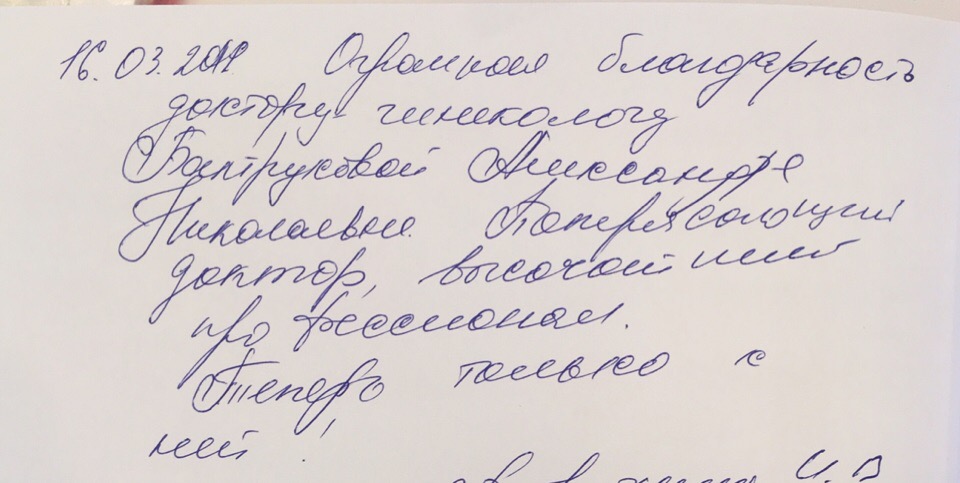 16.03.2019. Огромная благодарность
доктору гинекологу
Александре
Николаевне. Потерясающий
доктор, высочайший
профессионал.
Теперь только к
ней!